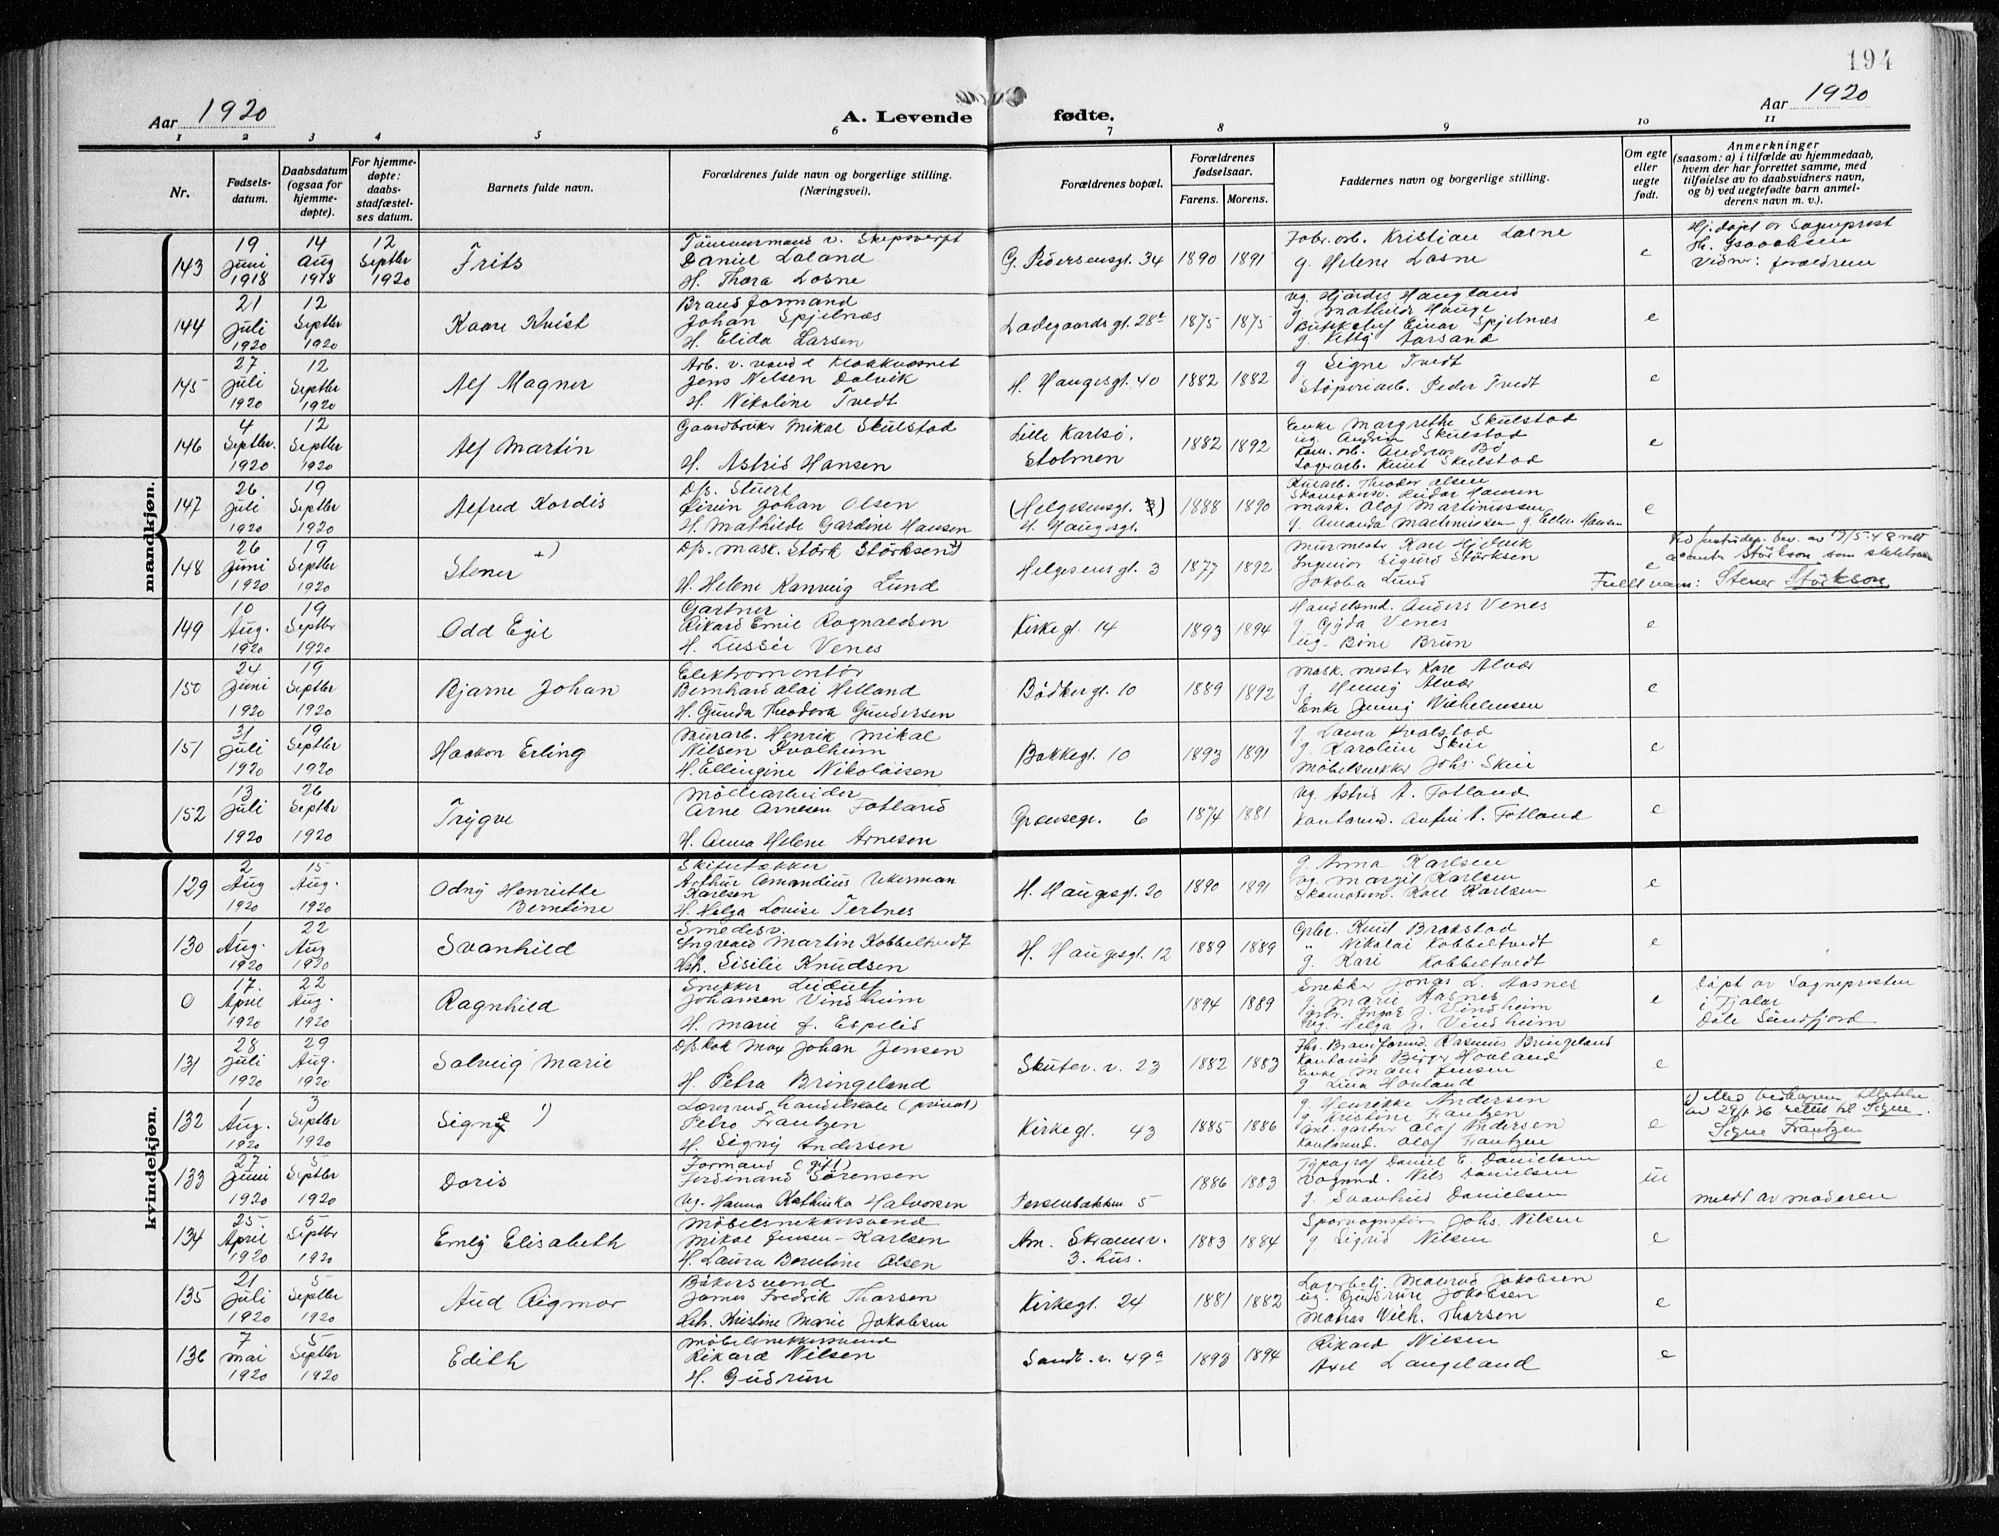 194
Aar 1920
A. Levende
fødte.
Aar 1920
1 2 3 4 5 6 7 8 9 10 11
Nr.
Fødsels-
datum.
Daabsdatum
(ogsaa for
hjemme-
døpte).
For hjemme-
døpte:
daabs-
stadfæstel-
ses datum.
Barnets fulde navn.
Forældrenes fulde navn og borgerlige stilling.
(Næringsvei).
Forældrenes bopæl.
Forældrenes
fødselsaar.
Farens. Morens.
Faddernes navn og borgerlige stilling.
Om egte
eller
uegte
født.
Anmerkninger
(saasom: a) i tilfælde av hjemmedaab,
hvem der har forrettet samme, med
tilføielse av to daabsvidners navn,
og b) ved uegtefødte barn anmel-
derens navn m. v.).
mandkjøn.
143
19 Juni 1918
14 Aug 1918
12 Septbr 1920
Frits
Tømmermand v. Skipsverft
Daniel Loland
H. Thora Losne
G. Pedersensgt. 34
1890 1891
Fabr. arb. Kristian Losne
g. Helene Losne
e
Hj. døpt av Sogneprest
H. Isaachsen
Vidner: forældrene
144
21 Juli 1920
12 Septbr 1920
Kaare Kvist
Brandformand
Johan Spjelnæs
H. Elida Larsen
Ladegaardsgt. 28
1875 1875
ug. Hjørdis Haugland
g. Mathilde Hauge
Butikkchef Einar Spjelnæs
g. Kitty Aarsand
e
145
27 Juli 1920
12 Septbr 1920
Alf Magner
Arb. v. vand & kloakvæsnet
Jens Nilsen Dalvik
H. Nikoline Tvedt
H. Haugesgt. 40
1882 1882
g. Signe Tvedt
Støperiarb. Peder Tvedt
e
146
4 Septbr. 1920
12 Septbr 1920
Alf Martin
Gaardbruker Mikal Skulstad
H. Astrid Hansen
Lille Karlsø.
Stolmen
1882 1892
Enke Margrethe Skulstad
ug. Skulstad
Andreas Bø
Lagerarb. Knut Skulstad
e
147
26 Juli 1920
19 Septbr 1920
Alfred Kordis
D/s. Stuert
Johan Olsen
H. Mathilde Gardine Hansen
(Helgesensgt 3)
H. Haugesgt.
1888 1890
Theodor Olsen
Reidar Hansen
mask. Olaf Martinussen
g. Amanda Martinussen g. Ellen Hansen
e
148
26 Juni 1920
19 Septbr 1920
Stener +)
D/s. mask. Störk Störksen
H. Helene Kanveig Lund
Helgesensgt. 3
1877 1892
Murmestr. Karl
Ingeniør Sigurd Störksen
Jakoba Lund
e
som slektsnavn
Fuldt navn: Stener Störkson
149
10 Aug. 1920
19 Septbr 1920
Odd Egil
Gartner
Rikard Emil Ragnaldsen
H. Lussie Venes
Kirkegt. 14
1893 1894
Handelsmd. Anders Venes
g. Gyda Venes
ug. Bine Brun
e
150
24 Juni 1920
19 Septbr 1920
Bjarne Johan
Elektromontør
Bernhard Olai Helland
H. Gunda Theodora Gundersen
Bødkergt. 10
1889 1892
mask. mestr Kare Alvær
g. Henny Alvær
Enke Jenny Wilhelmsen
e
151
31 Juli 1920
19 Septbr 1920
Haakon Erling
Murarb. Henrik Mikal
Nilsen Kvalheim
H. Ellingine Nikolaisen
Bakkegt. 10
1893 1891
g. Laura Kvalstad
g. Karoline Skei
Møbelsnekker Johs. Skei
e
152
13 Juli 1920
26 Septbr 1920
Trygve
Møllearbeider
Arne Arnesen Totland
H. Anna Helene Arnesen
Grensegt. 6
1874 1881
ug. Astrid A. Totland
Kontormd. Anfin A. Totland
e
kvindekjøn.
129
2 Aug 1920
15 Aug. 1920
Odny Henriette
Berntine
Skifertækker
Arthur Amandius Ukerman
Karlsen
H. Helga Lovise Tertnes
H. Haugesgt. 20
1890 1891
g. Anna Karlsen
ug. Margit Karlsen
Karl Karlsen
e
130
1 Aug. 1920
22 Aug 1920
Svanhild
Smedesv.
Ingvald Martin Kobbeltvedt
Hsh. Sisilie Knudsen
H. Haugesgt. 12
1889 1889
Gbr. Knut Brakstad
" Nikolai Kobbeltvedt
g. Kari Kobbeltvedt
e
0
17. April 1920
22 Aug. 1920
Ragnhild
Snekker Leidulf
Johansen Vindheim
H. Marie J. Espelid
1894 1889
Snekker Jonas L. Hasnes
g. Marie Hasnes
Gbr. Ingar J. Vindheim
ug. Helga J. Vindheim
e
Døpt av Sognepresten
i Fjaler
Dale Søndfjord
131
28 Juli 1920
29 Aug. 1920
Solveig Marie
D/s. kok Max Johan Jensen
H. Petra Bringeland
Skutev. v. 23
1882 1883
Fhv. Brandformd. Rasmus Bringeland
Kontorist Birger Hovland
Enke Mani Jensen
g. Lina Hovland
e
132
1 Aug. 1920
3 Septbr 1920
Signe 1)
Lærer ved handelskole (privat)
Petro Frantzen
H. Signy Andersen
Kirkegt. 43
1885 1886
g. Henrikke Andersen
g. Kristine Frantzen
gartner Olaf Andersen
Kontormd. Olaf Frantzen
e
1) Med bevilling
av 29/1 36 rettet til Signe.
Signe Frantzen
133
27 Juni 1920
5 Septbr 1920
Doris
Formand (gift)
Ferdinand Sørensen
ug. Hanna Kathinka Halvorsen
Persenbakken 5
1886 1883
Typograf Daniel E. Danielsen
Vognmd. Nils Danielsen
g. Svanhild Danielsen
u
meldt av moderen
134
25 April 1920
5 Septbr 1920
Emly Elisabeth
Møbelsnekkersvend
Mikal Jensen-Karlsen
H. Laura Berntine Olsen
Am. Skramsv.
3. hus.
1883 1884
Sporvognsfør. Johs. Nilsen
g Sigrid Nilsen
e
135
21 Juli 1920
5 Septbr 1920
Aud Rigmor
Bakersvend
James Fredrik Thorsen
Hsh. Kristine Marie Jakobsen
Kirkegt. 24
1881 1882
Lagerbetj. Monrad Jakobsen
ug. Gudrun Jakobsen
Matros Wilh. Thorsen
e
136
7 Mai 1920
5 Septbr 1920
Edith
Møbelsnekkersvend
Rikard Nilsen
H. Gudrun
Sandv. v. 49a
1893 1894
Rikard Nilsen
Axel Langeland
e